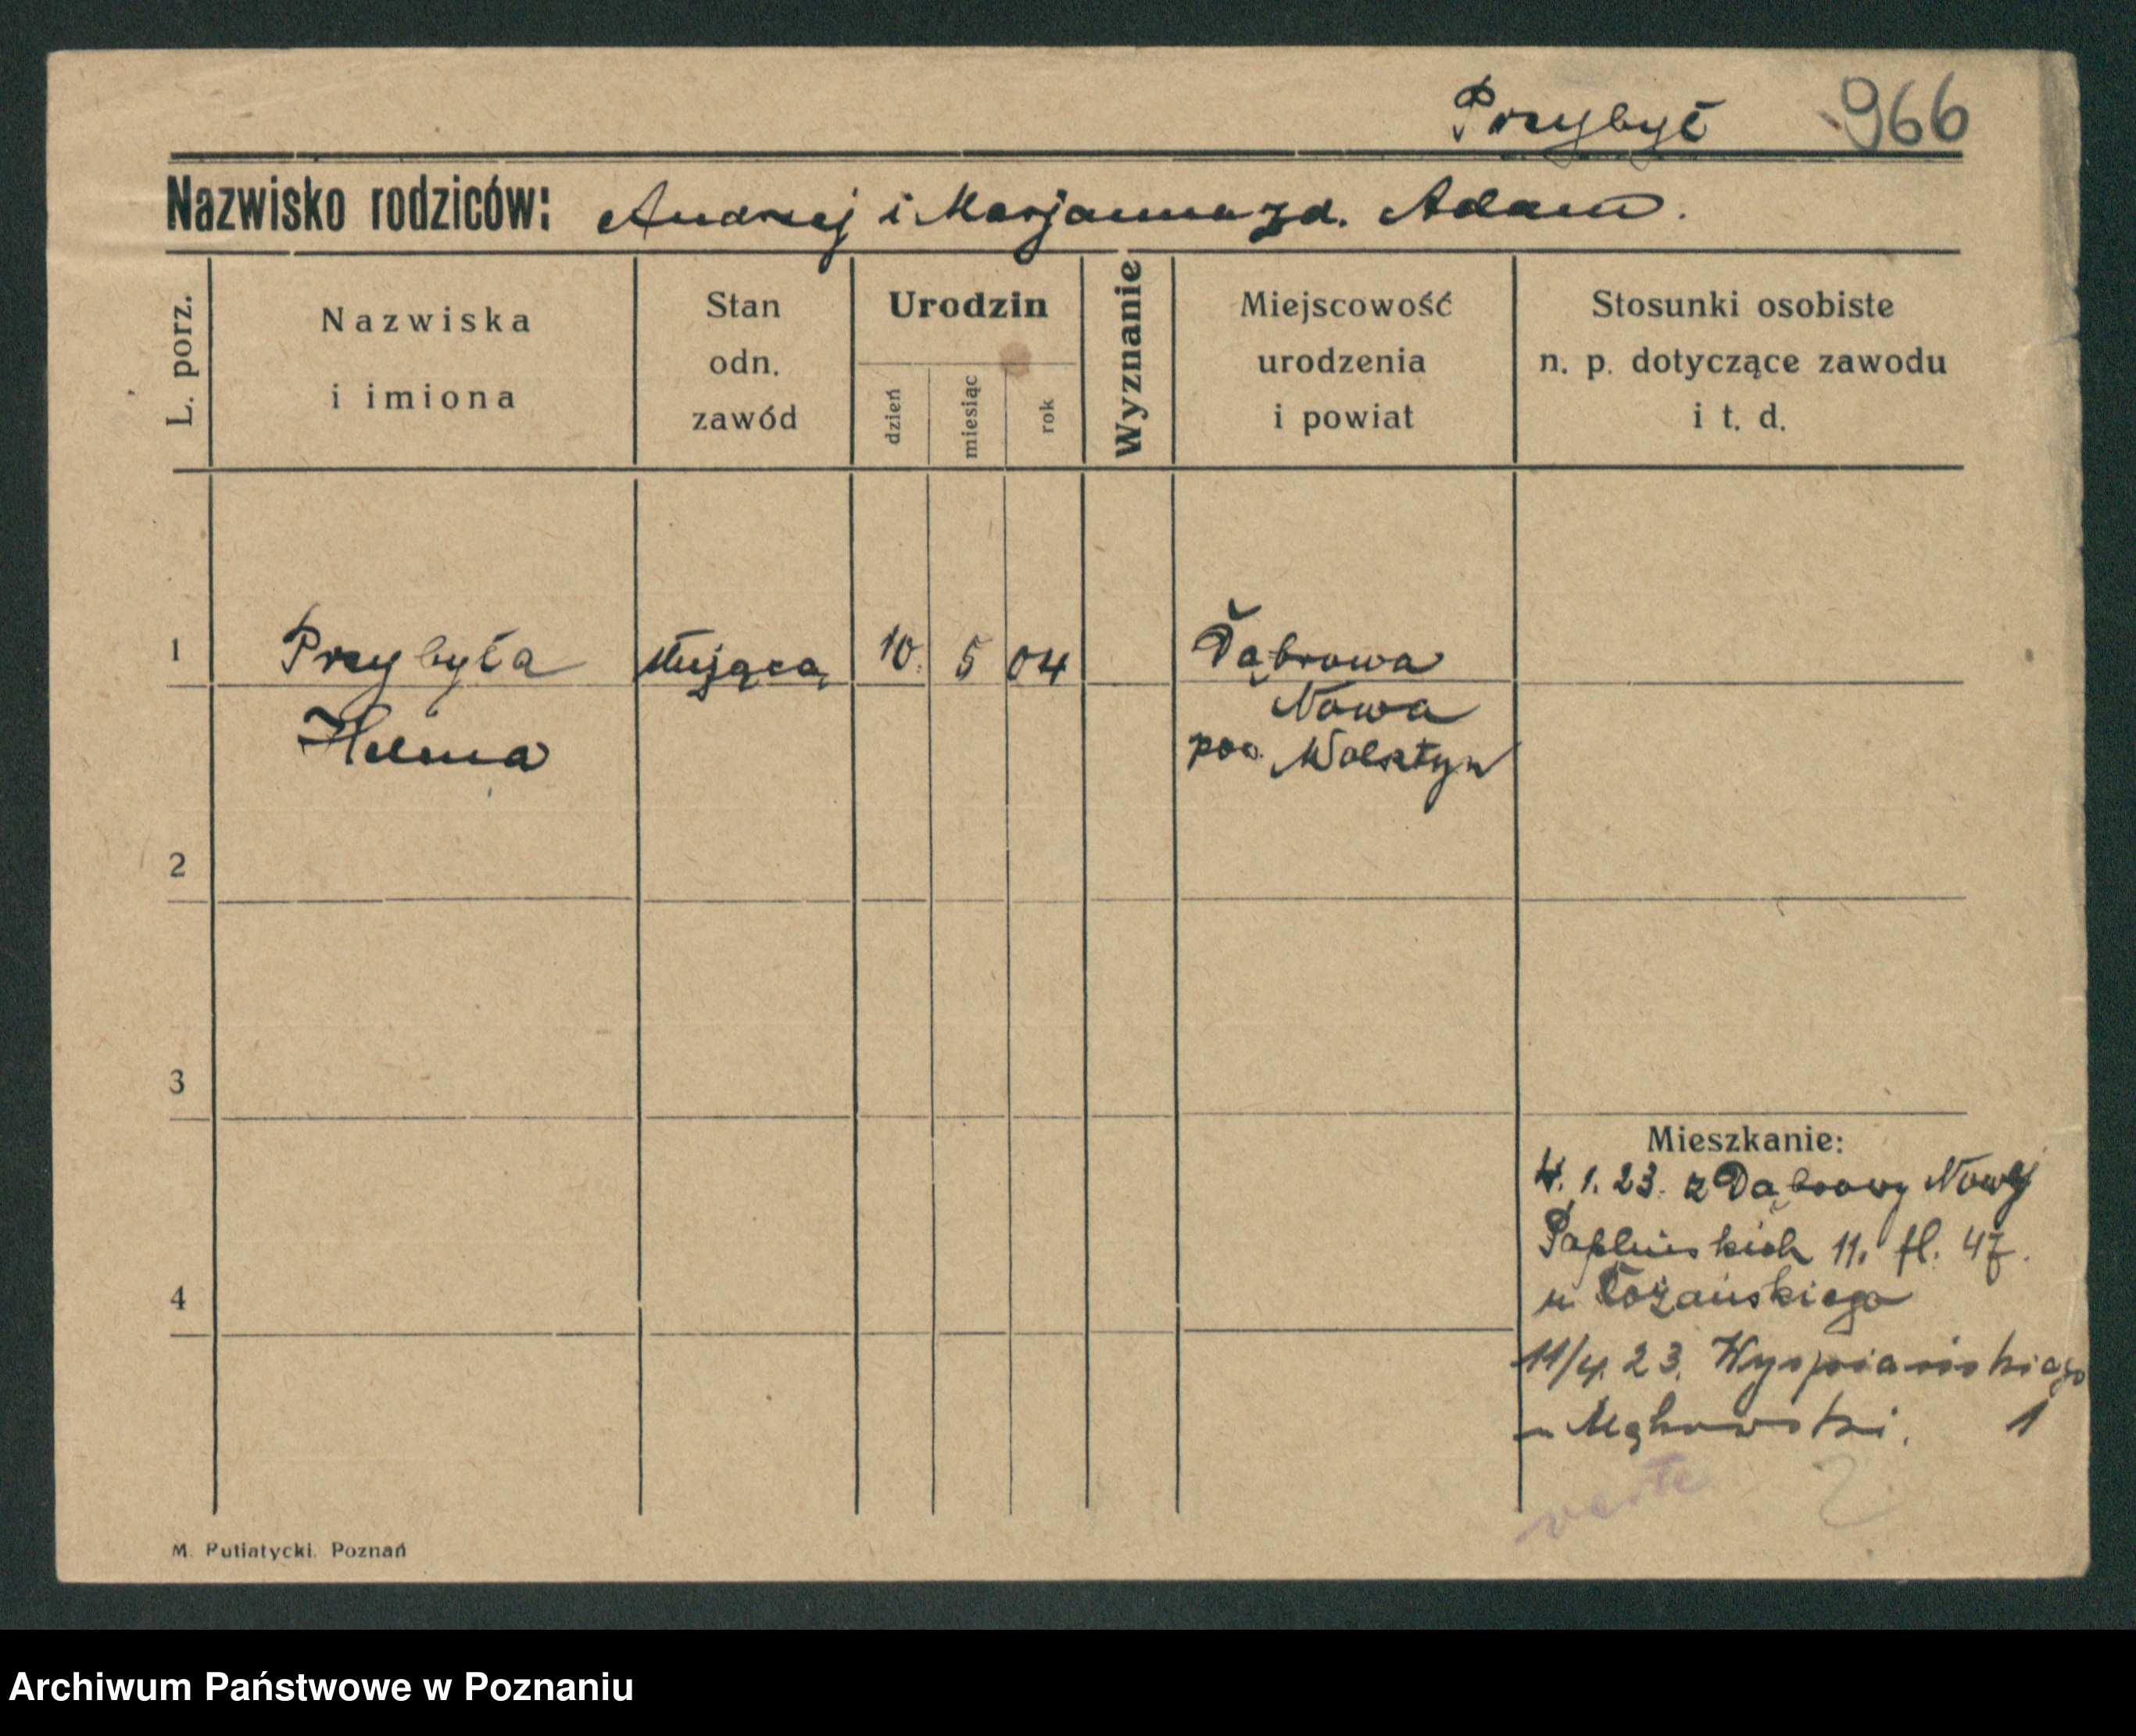 Przybył 966
Nazwisko rodziców: Andrzej i Marjanna zd. Adam.
L. porz.
Nazwiska
i imiona
Stan
odn.
zawód
Urodzin
dzień
miesiąc
rok
Wyznanie
Miejscowość
urodzenia
i powiat
Stosunki osobiste
n. p. dotyczące zawodu
i t. d.
1 Przybyła służąca 10. 5 04 Dąbrowa
Nowa
Helena pow. Wolsztyn
2
3
Mieszkanie:
4. 1. 23. z Dąbrowy Nowej
11. fl. 47.
4 u Łożańskiego
11/4. 23. Wyspiańskiego
u 1
verte 2
M. Putiatycki. Poznań
Archiwum Państwowe w Poznaniu